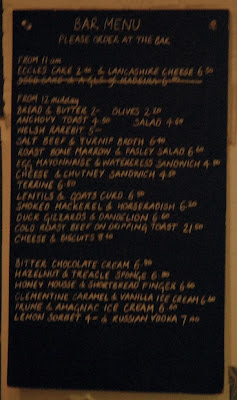 BAR MENU
PLEASE ORDER AT THE BAR
FROM 11am
ECCLES CAKE 2.80 & LANCASHIRE CHEESE 6.50
SEED CAKE & A GLASS OF MADEIRA
FROM 12 midday
BREAD & BUTTER 2- OLIVES 2.80
ANCHOVY TOAST 4.50 SALAD 4.50
WELSH RAREBIT 5-
SALT BEEF & TURNIP BROTH 6.40
ROAST BONE MARROW & PARSLEY SALAD 6.80
EGG MAYONNAISE & WATERCRESS SANDWICH 4.80
CHEESE & CHUTNEY SANDWICH 4.50
TERRINE 6.80
LENTILS & GOATS CURD 6
SMOKED MACKEREL & HORSERADISH 6
DUCK GIZZARDS & DANDELION 6
COLD ROAST BEEF ON DRIPPING TOAST
CHEESE & BISCUITS
BITTER CHOCOLATE CREAM 6
HAZELNUT & TREACLE SPONGE 6
HONEY MOUSSE & SHORTBREAD FINGER 6
CLEMENTINE CARAMEL & VANILLA ICE CREAM 6
PRUNE & AMAGNAC ICE CREAM 6
LEMON SORBET 4- & RUSSIAN VODKA 7